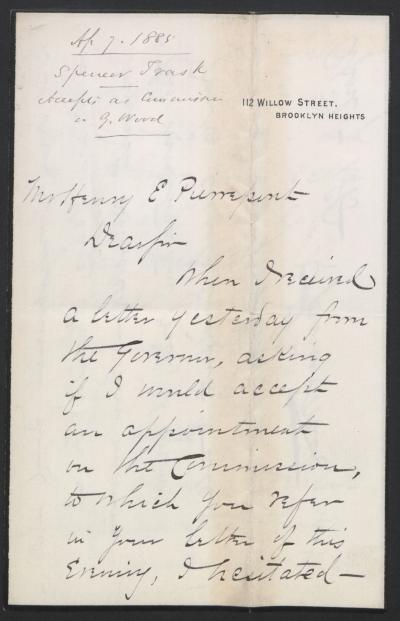 Ap 7. 1885
Spencer Trask
Accepts as Commission
G. Wood
112 WILLOW STREET.
BROOKLYN HEIGHTS
Mr Henry E Pierrepont
Dear Sir
When I received
a letter yesterday from
the Governor, asking
if I would accept
an appointment
on the Commission,
to which you refer
in your letter of this
Evening, I hesitated—